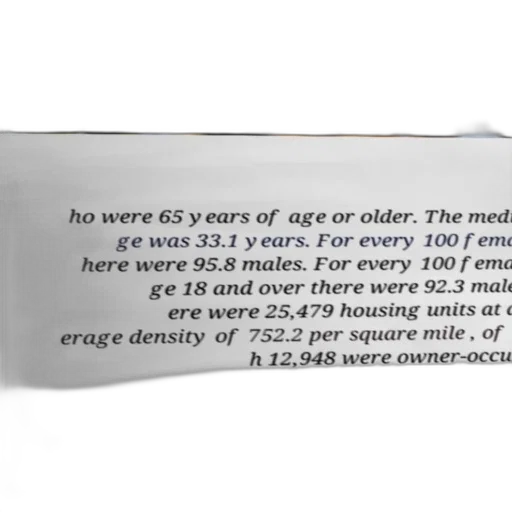 ho were 65 years of age or older. The medi
ge was 33.1 years. For every 100 fema
here were 95.8 males. For every 100 fema
ge 18 and over there were 92.3 male
ere were 25,479 housing units at a
erage density of 752.2 per square mile , of
h 12,948 were owner-occu